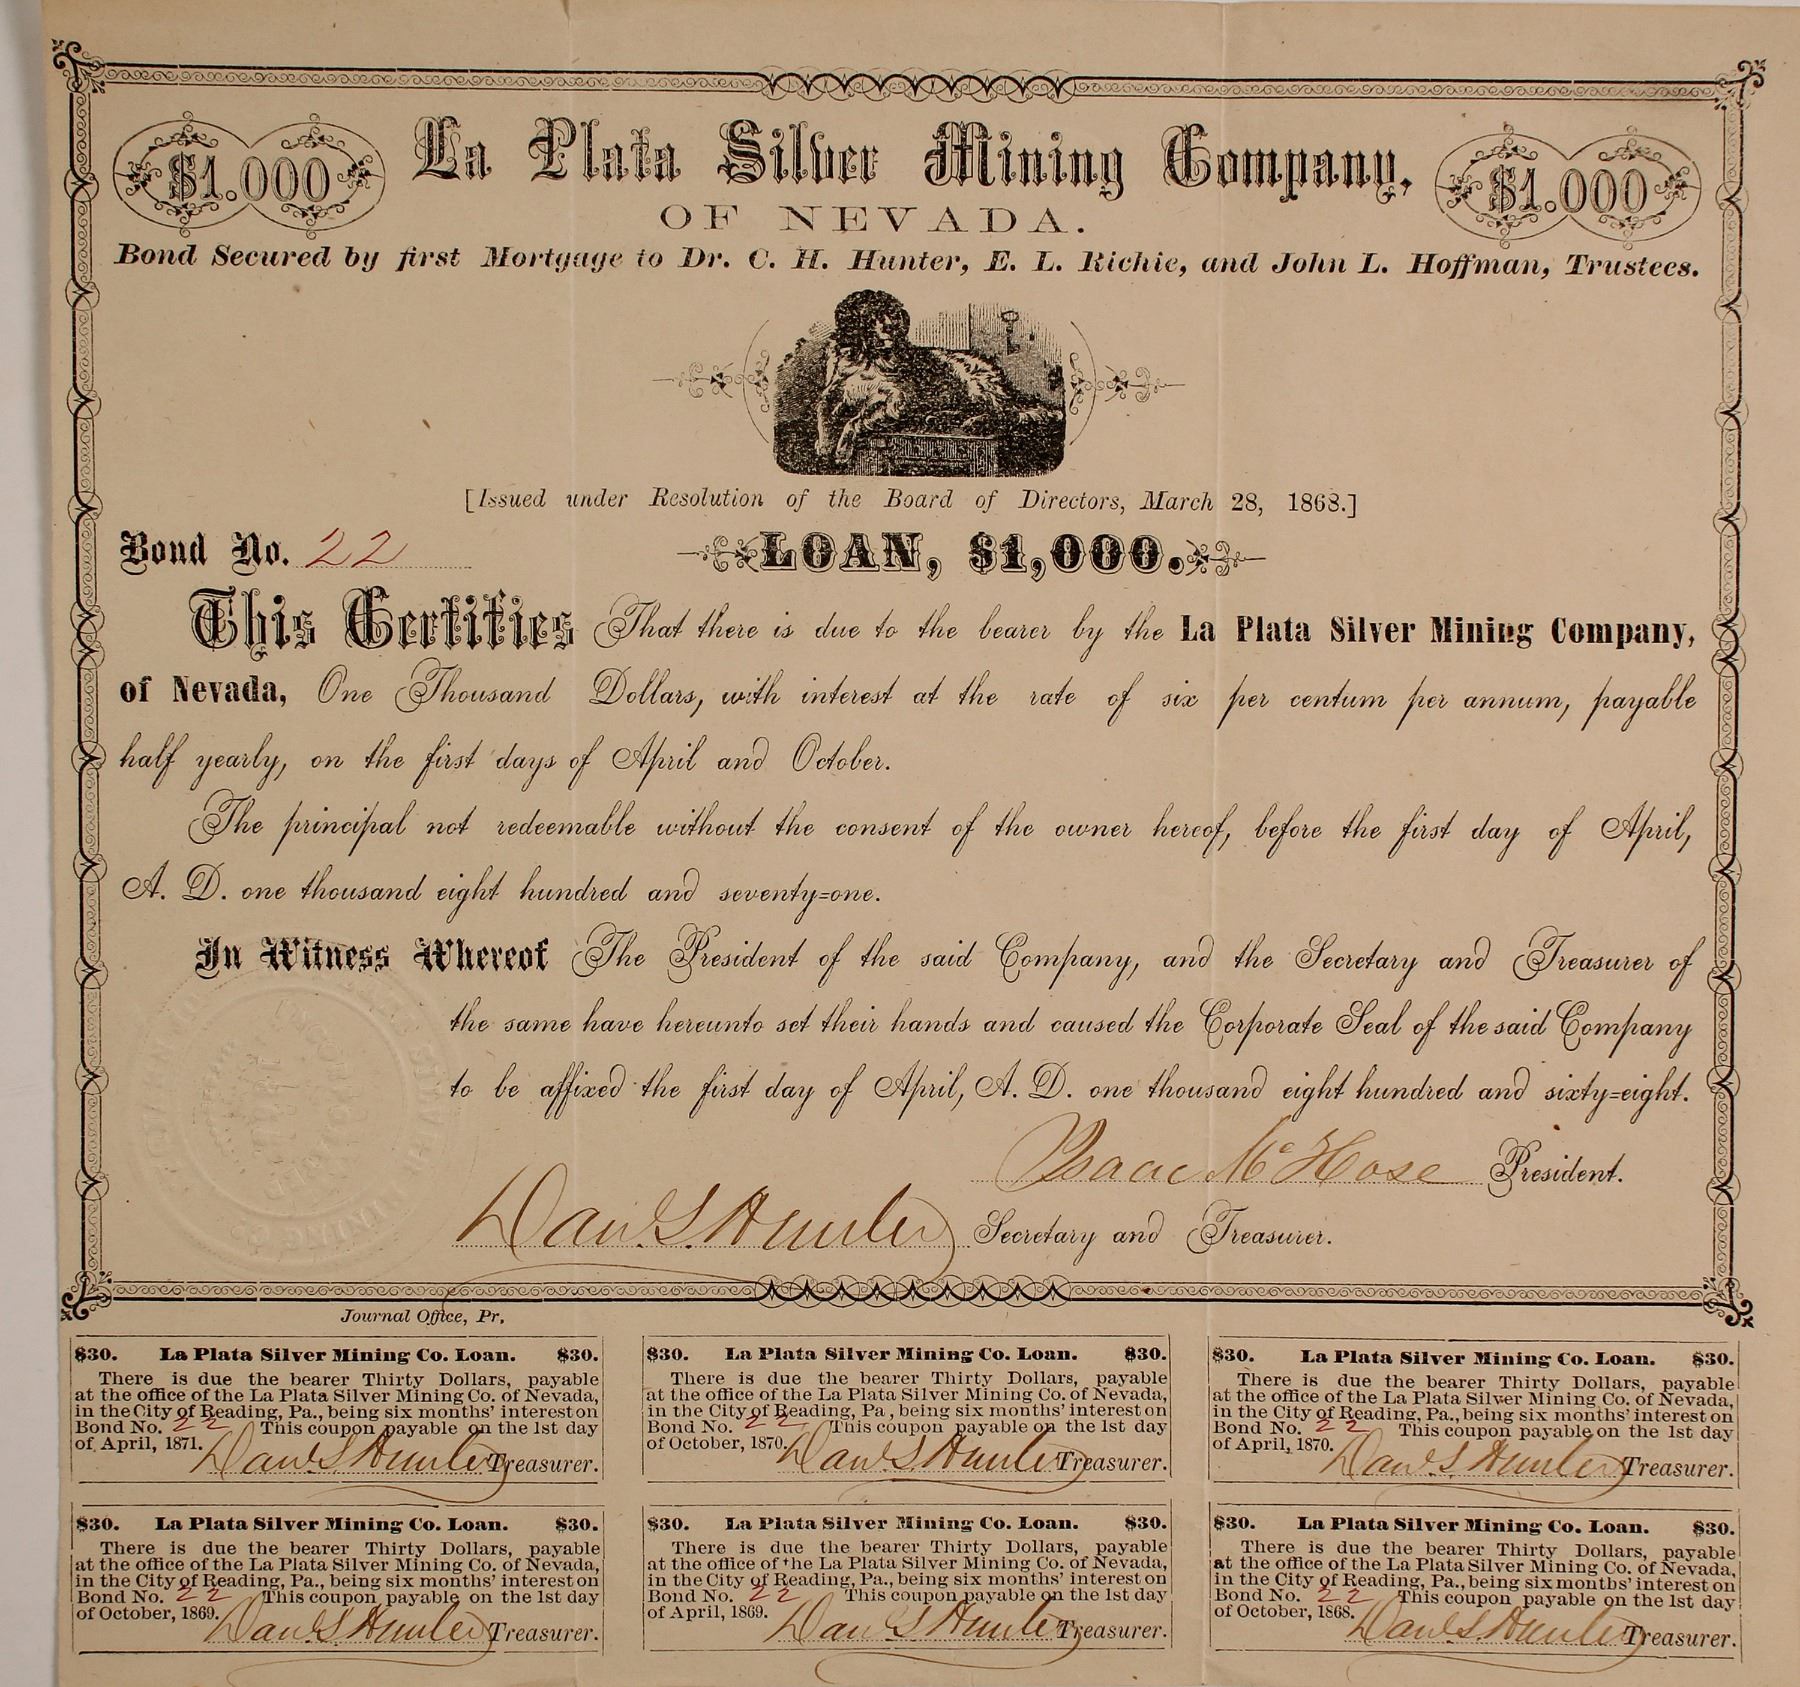 $1.000 La Plata Silver Mining Company, $1.000
OF NEVADA.
Bond Secured by first Mortgage to Dr. C. H. Hunter, E. L. Richie, and John L. Hoffman, Trustees.
[Issued under Resolution of the Board of Directors, March 28, 1868.]
Bond No. 22 LOAN, $1,000.
This Certifies That there is due to the bearer by the La Plata Silver Mining Company,
of Nevada, One Thousand Dollars, with interest at the rate of six per centum per annum, payable
half yearly, on the first days of April and October.
The principal not redeemable without the consent of the owner hereof, before the first day of April,
A. D. one thousand eight hundred and seventy=one.
In Witness Whereof The President of the said Company, and the Secretary and Treasurer of
the same have hereunto set their hands and caused the Corporate Seal of the said Company
to be affixed the first day of April, A. D. one thousand eight hundred and sixty=eight.
Isaac McHose President.
Dan. S. Hunter Secretary and Treasurer.
Journal Office, Pr.
$30. La Plata Silver Mining Co. Loan. $30.
There is due the bearer Thirty Dollars, payable
at the office of the La Plata Silver Mining Co. of Nevada,
in the City of Reading, Pa., being six months' interest on
Bond No. 22 This coupon payable on the 1st day
of April, 1871. Dan. S. Hunter Treasurer.
$30. La Plata Silver Mining Co. Loan. $30.
There is due the bearer Thirty Dollars, payable
at the office of the La Plata Silver Mining Co. of Nevada,
in the City of Reading, Pa , being six months' interest on
Bond No. 22 This coupon payable on the 1st day
of October, 1870. Dan. S. Hunter Treasurer.
$30. La Plata Silver Mining Co. Loan. $30.
There is due the bearer Thirty Dollars, payable
at the office of the La Plata Silver Mining Co. of Nevada,
in the City of Reading, Pa., being six months' interest on
Bond No. 22 This coupon payable on the 1st day
of April, 1870. Dan. S. Hunter Treasurer.
$30. La Plata Silver Mining Co. Loan. $30.
There is due the bearer Thirty Dollars, payable
at the office of the La Plata Silver Mining Co. of Nevada,
in the City of Reading, Pa., being six months' interest on
Bond No. 22 This coupon payable on the 1st day
of October, 1869. Dan. S. Hunter Treasurer.
$30. La Plata Silver Mining Co. Loan. $30.
There is due the bearer Thirty Dollars, payable
at the office of the La Plata Silver Mining Co. of Nevada,
in the City of Reading, Pa., being six months' interest on
Bond No. 22 This coupon payable on the 1st day
of April, 1869. Dan. S. Hunter Treasurer.
$30. La Plata Silver Mining Co. Loan. $30.
There is due the bearer Thirty Dollars, payable
at the office of the La Plata Silver Mining Co. of Nevada,
in the City of Reading, Pa., being six months' interest on
Bond No. 22 This coupon payable on the 1st day
of October, 1868. Dan. S. Hunter Treasurer.